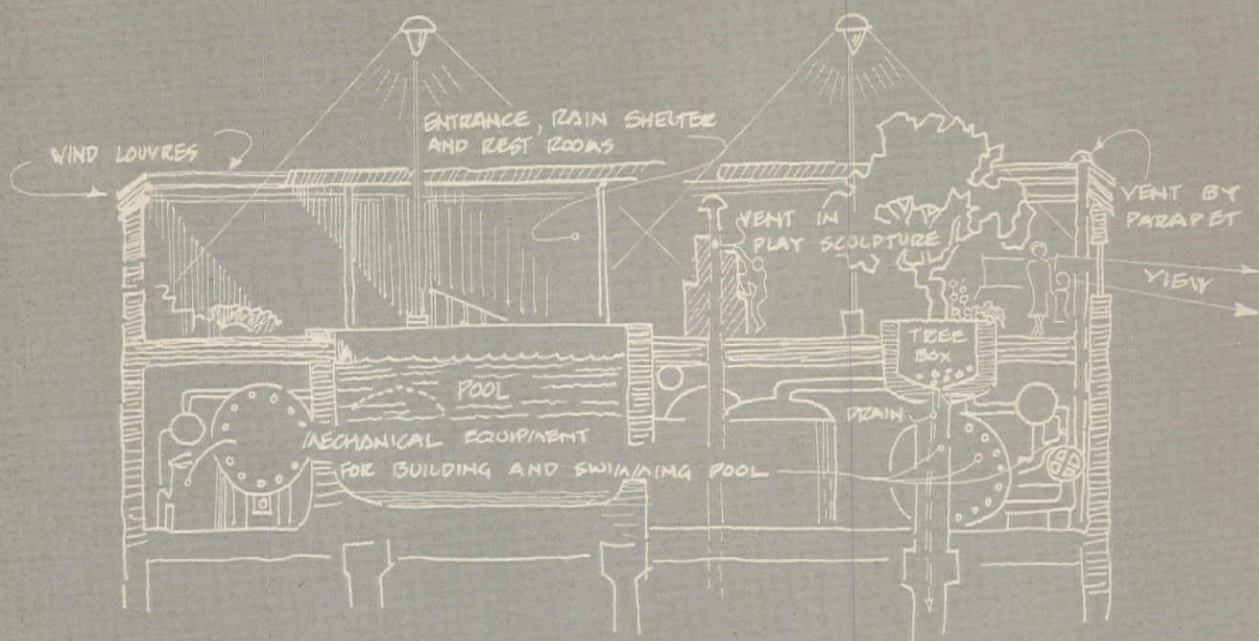 ENTRANCE, RAIN SHELTER
AND REST ROOMS
WIND LOUVRES
VENT BY
PARAPET
VENT IN
PLAY SCULPTURE
VIEW
TREE
BOX
POOL
DRAIN
MECHANICAL EQUIPMENT
FOR BUILDING AND SWIMMING POOL